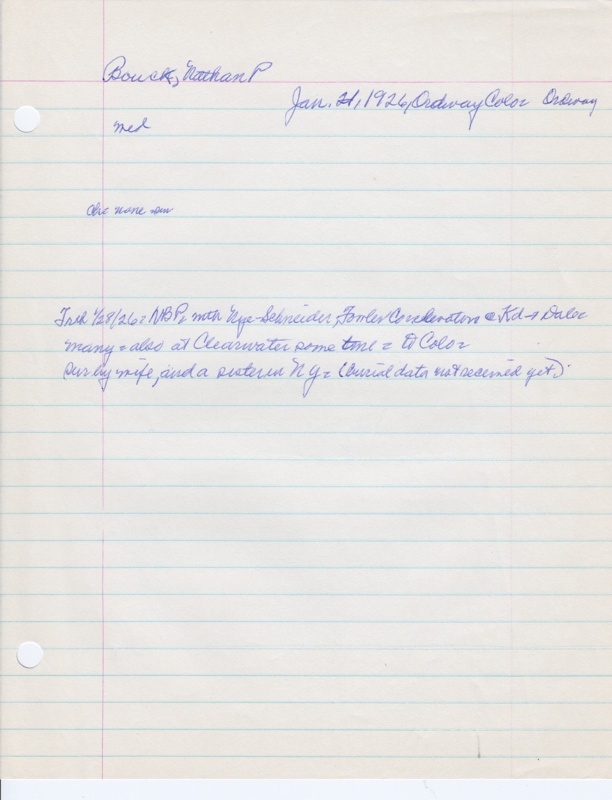 Bouck, Nathan P
Jan. 21, 1926, Ordway Color Ordway
med
Obit name
1/28/26= NBP, with Nye-Schneider, Fowler Co elevators
many = also at Clearwater some time = to Color =
Sur by wife, and a sister in N Y = (burial data not received yet).